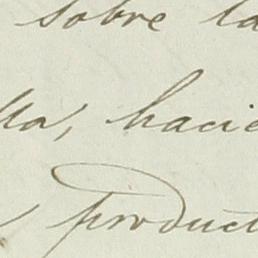 sobre la
lla, hacie
product